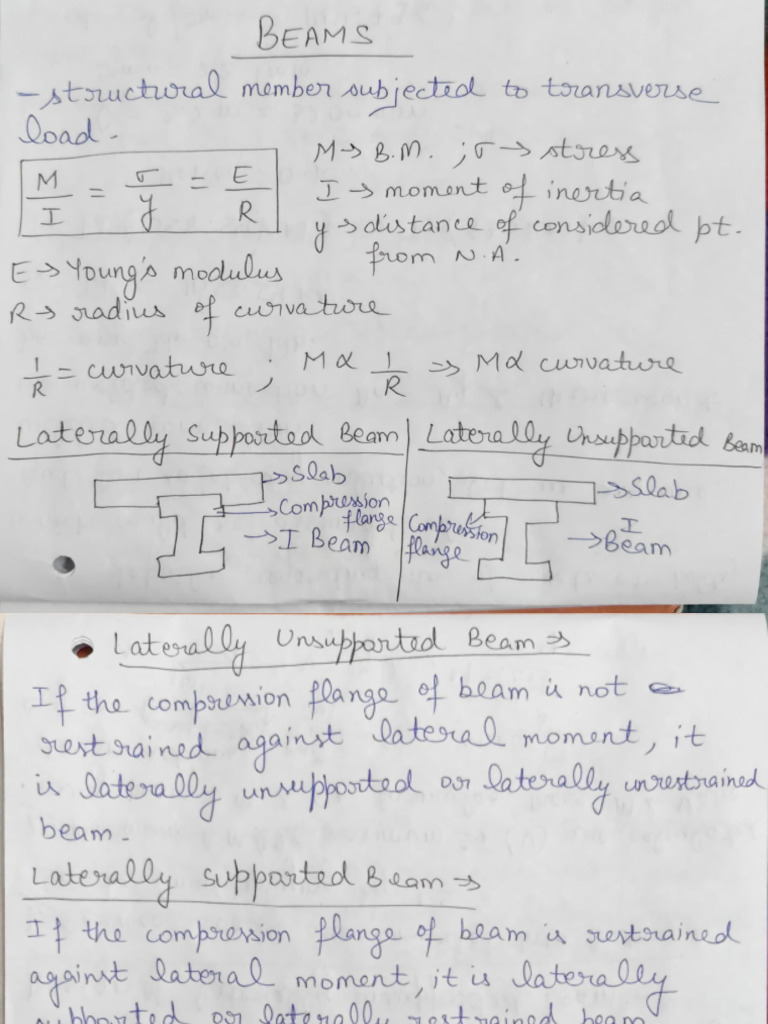 BEAMS
- structural member subjected to transverse
load.
M/I = σ/y = E/R
M → B.M. ; σ → stress
I → moment of inertia
y → distance of considered pt.
from N.A.
E → Young's modulus
R → radius of curvature
1/R = curvature ; M ∝ 1/R ⇒ M ∝ curvature
Laterally Supported Beam
→ Slab
→ Compression
flange
→ I Beam
Laterally Unsupported Beam
→ Slab
Compression
flange
→ I
Beam
• Laterally Unsupported Beam ⇒
If the compression flange of beam is not
restrained against lateral moment, it
is laterally unsupported or laterally unrestrained
beam.
Laterally supported Beam →
If the compression flange of beam is restrained
against lateral moment, it is laterally
supported or laterally restrained beam